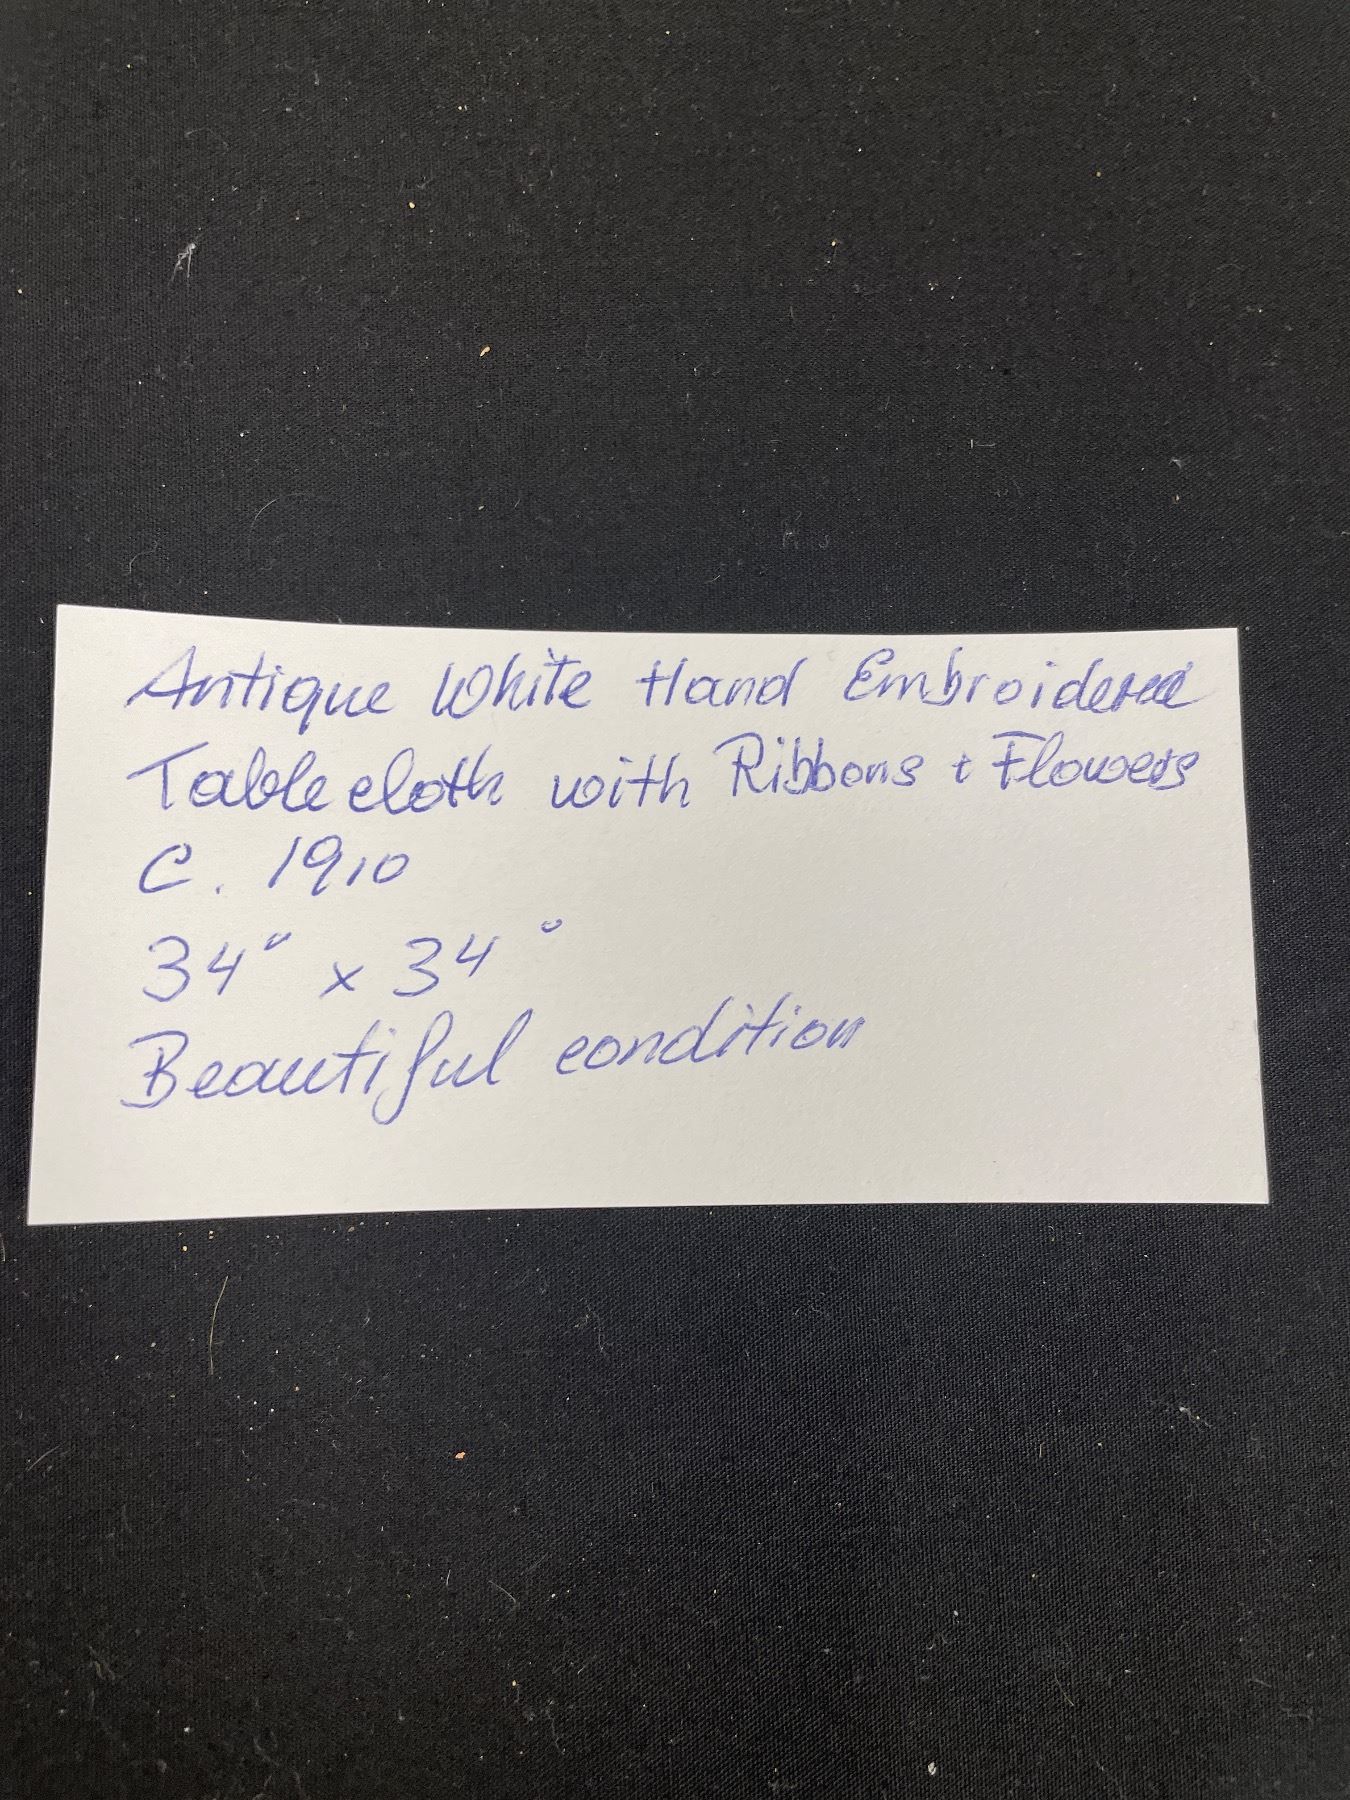 Antique White Hand Embroidered
Tablecloth with Ribbons + Flowers
C. 1910
34" x 34"
Beautiful condition